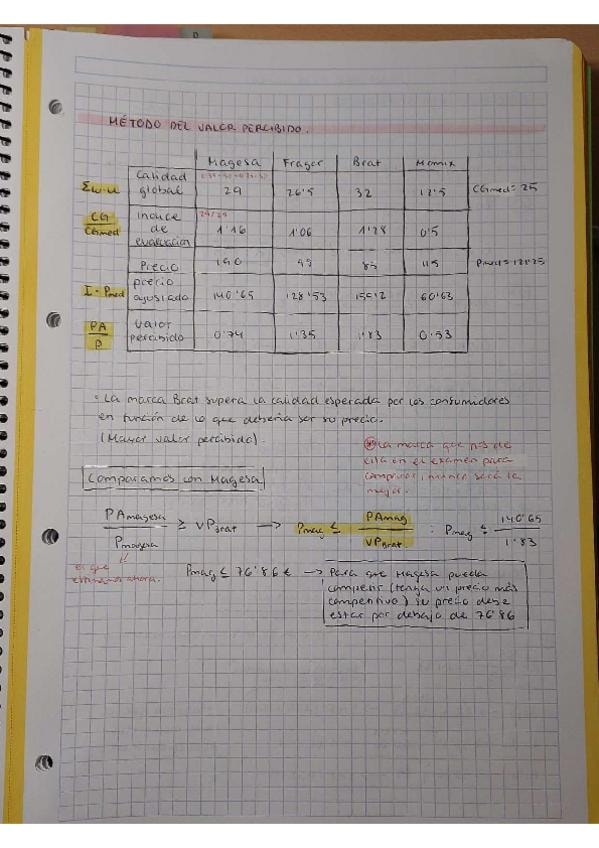 MÉTODO DEL VALOR PERCIBIDO.
Magesa Fragor Brat Momix
Σw·u Calidad global 29 26'5 32 12'5 CGmed = 25
CG/CGmed índice de evaluación 29/25 1'16 1'06 1'28 0'5
Precio 190 95 85 115 Pmed = 121'25
I · Pmed precio ajustado 140'65 128'53 155'2 60'63
PA/P valor percibido 0'74 1'35 1'83 0'53
· La marca Brat supera la calidad esperada por los consumidores
en función de lo que debería ser su precio.
(Mayor valor percibido).
* La marca que nos de
ella en el examen para
comparar, nunca será la
mejor.
Comparamos con Magesa
PAmagesa/Pmagesa ≥ VPBrat → Pmag ≤ PAmag/VPBrat : Pmag ≤ 140'65/1'83
el que
estimamos ahora.
Pmag ≤ 76'86 € → Para que Magesa pueda
competir (tenga un precio más
competitivo) su precio debe
estar por debajo de 76'86